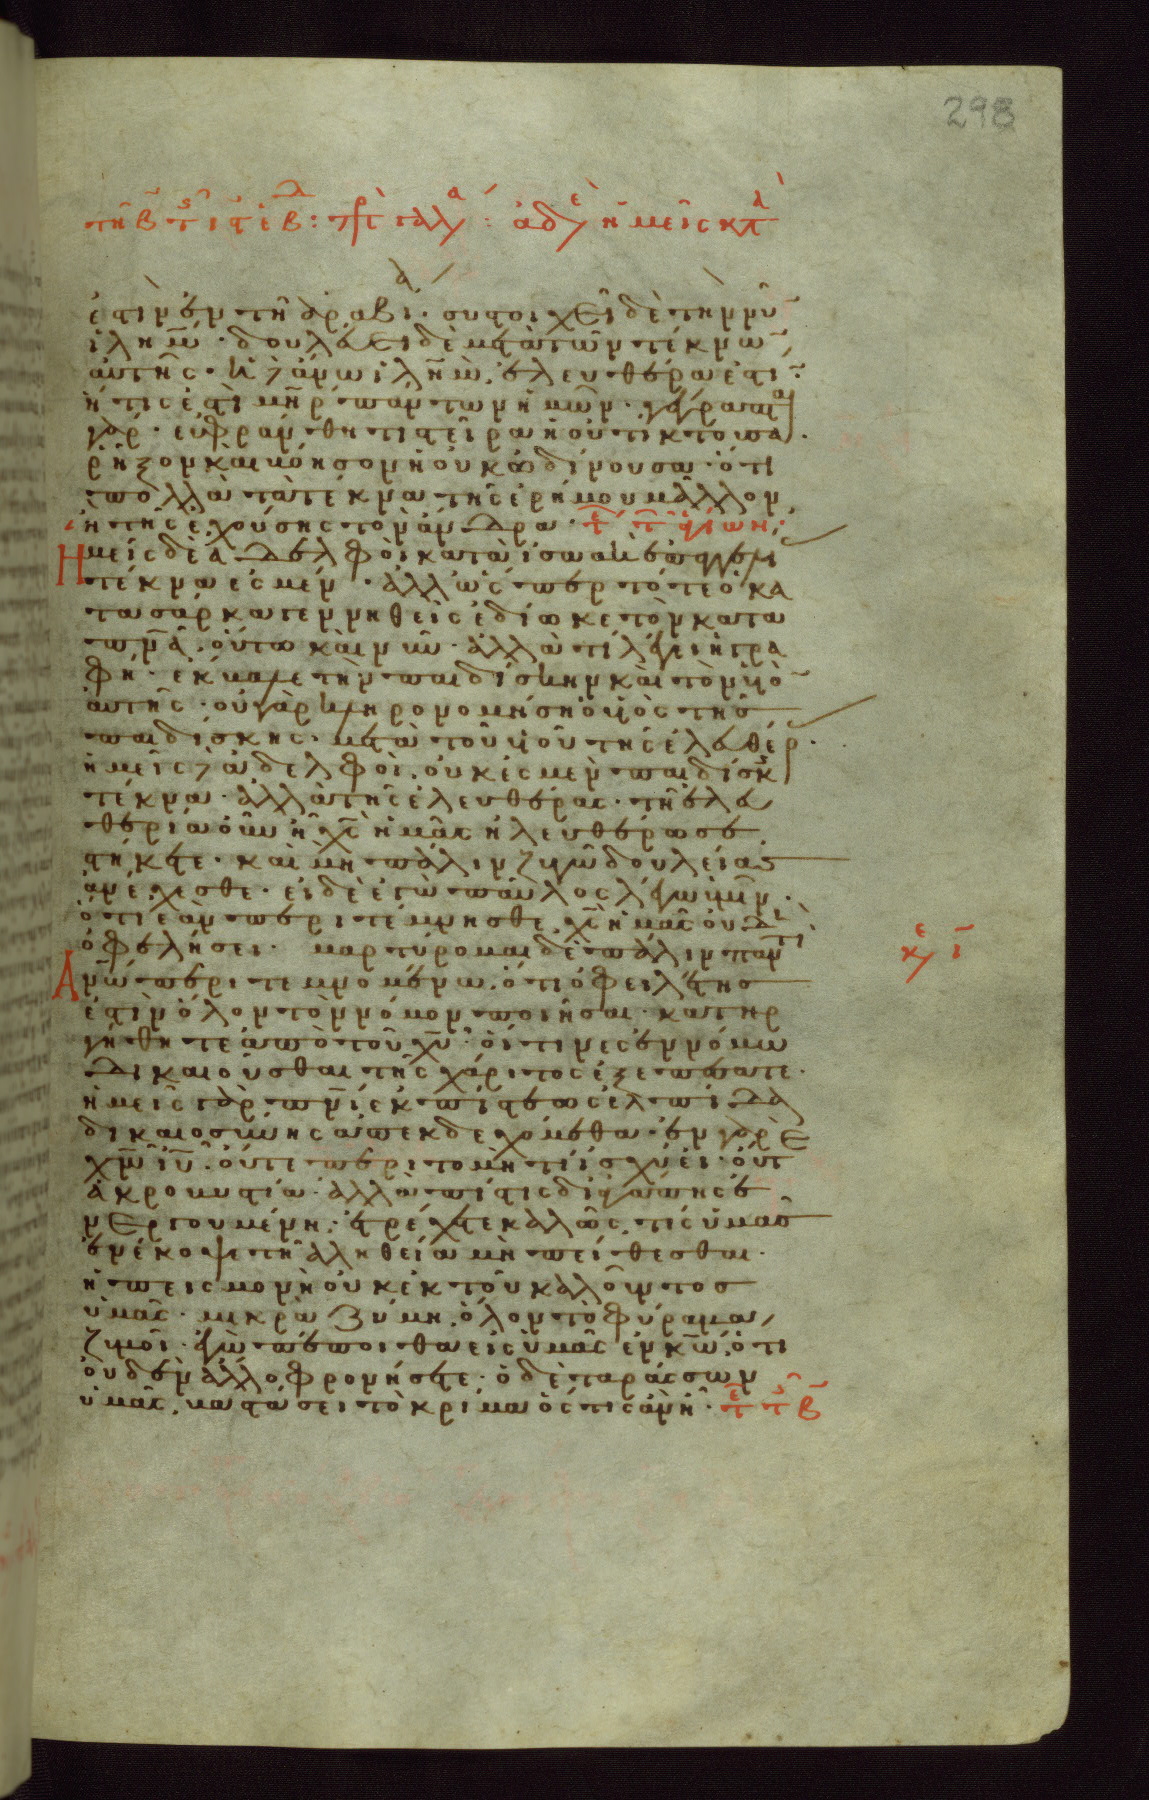 298
πρ γαλ : ἀδε ἡμεῖς κτ
ἐστὶν ἐν τῆ ἀραβία· συστοιχεῖ δὲ τὴν νῦν
ἱλη̅μ· δουλεύει δὲ μετὰ τῶν τέκνων
αὐτῆς· ἡ δὲ ἄνω ἱλη̅μ, ἐλευθέρα ἐστί·
ἥτις ἐστὶ μη̅ρ πάντων ἡμῶν· γέγραπται
γάρ· εὐφράνθητι στεῖρα ἡ οὐ τίκτουσα·
ῥῆξον καὶ βόησον ἡ οὐκ ὠδίνουσα· ὅτι
πολλὰ τὰ τέκνα τῆς ἐρήμου μᾶλλον
ἢ τῆς ἐχούσης τὸν ἄνδρα·
Ημεῖς δὲ ἀδελφοὶ κατὰ ἰσαὰκ ἐπαγγελίας
τέκνα ἐσμέν· ἀλλ' ὥσπερ τότε ὁ κα
τὰ σάρκα γεννηθεὶς ἐδίωκε τὸν κατὰ
πν̅α· οὕτω καὶ νῦν· ἀλλὰ τί λέγει ἡ γρα
φή· ἔκβαλε τὴν παιδίσκην καὶ τὸν υἱὸν
αὐτῆς· οὐ γὰρ κληρονομήση ὁ υἱὸς τῆς
παιδίσκης· μετὰ τοῦ υἱοῦ τῆς ἐλευθέρ·
ἡμεῖς δὲ ἀδελφοὶ, οὐκ ἐσμὲν παιδίσκης
τέκνα· ἀλλὰ τῆς ἐλευθέρας· τῆ ἐλευ
θερία οὖν ἧ χ̅ς ἡμᾶς ἠλευθέρωσε
στήκετε· καὶ μὴ πάλιν ζυγῶ δουλείας
ἀνέχεσθε· εἰ δὲ ἐγὼ παῦλος λέγω ὑμῖν·
ὅτι ἐὰν περιτέμνησθε χ̅ς ἡμᾶς οὐδὲν
ὀφελήσει· μαρτύρομαι δὲ πάλιν παντὶ
ἀν̅ω περιτεμνομένω, ὅτι ὀφειλέτης
ἐστὶν ὅλον τὸν νόμον ποιῆσαι· κατηρ
γήθητε ἀπὸ τοῦ χ̅υ· οἵτινες ἐν νόμω
δικαιοῦσθαι τῆς χάριτος ἐξεπέσατε·
ἡμεῖς γὰρ πν̅ι ἐκ πίστεως ἐλπίδα
δικαιοσύνης ἀπεκδεχόμεθα· ἐν γὰρ
χ̅ω ἰ̅υ· οὔτε περιτομή τι ἰσχύει· οὔτ
ἀκροβυστία· ἀλλὰ πίστις δι' ἀγάπης ἐ
νεργουμένη· ἐτρέχετε καλῶς· τίς ὑμᾶς
ἐνέκοψε τῆ ἀληθεία μὴ πείθεσθαι·
ἡ πεισμονὴ οὐκ ἐκ τοῦ καλοῦντος
ὑμᾶς· μικρὰ ζύμη ὅλον τὸ φύραμα
ζυμοῖ· ἐγὼ πέποιθα εἰς ὑμᾶς ἐν κ̅ω, ὅτι
οὐδὲν ἄλλο φρονήσετε· ὁ δὲ ταράσσων
ὑμᾶς, βαστάσει τὸ κρίμα ὅστις ἂν ἦ·